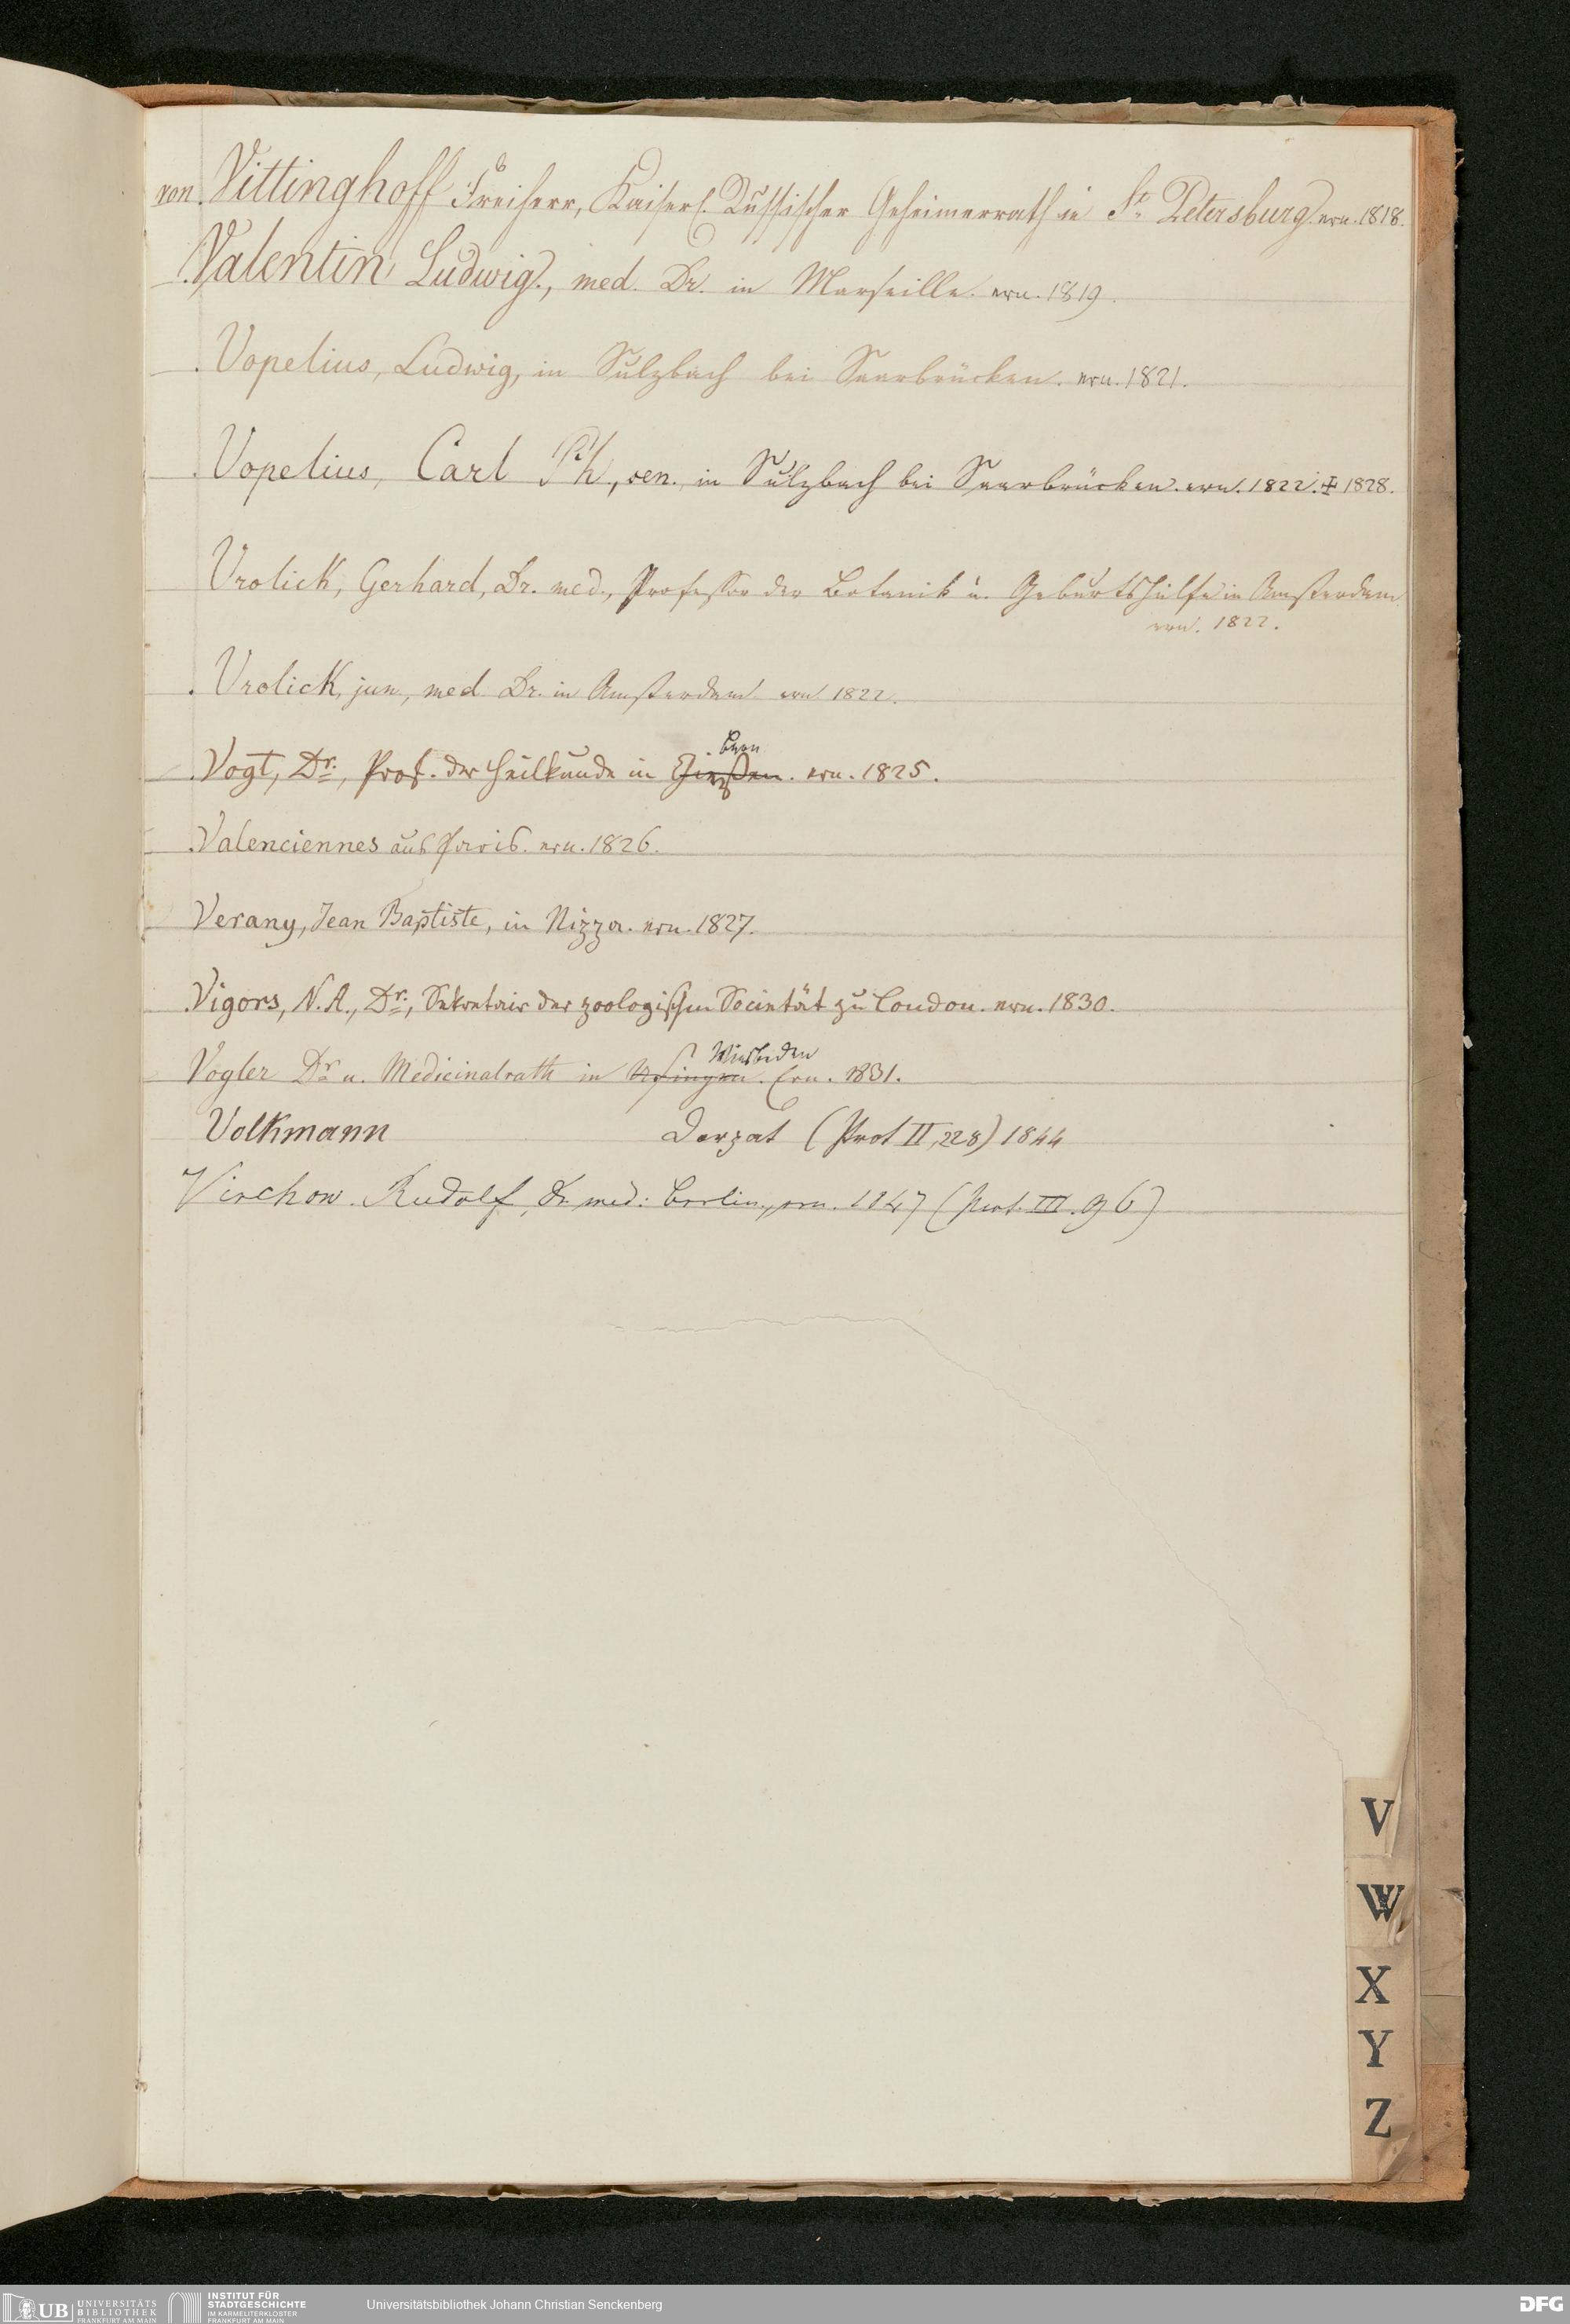 von Vittinghoff Freiherr, Kaiserl. Russischer Geheimerrath in St. Petersburg. ern. 1818.
Valentin Ludwig, med. Dr. in Marseille. ern. 1819.
Vopelius, Ludwig, in Sulzbach bei Saarbrücken. ern. 1821.
Vopelius, Carl Ph, sen. in Sulzbach bei Saarbrücken. ern. 1822. ✝ 1828.
Vrolick, Gerhard, Dr. med., Professor der Botanik u. Geburtshülfe in Amsterdam
ern. 1822.
Vrolick, jun, med. Dr. in Amsterdam ern. 1822.
Bern
Vogt, Dr., Prof. der Heilkunde in Gießen. ern. 1825.
Valenciennes aus Paris. ern. 1826.
Verany, Jean Baptiste, in Nizza. ern. 1827.
Vigors, N. A., Dr., Sekretair der zoologischen Societät zu London. ern. 1830.
Wiesbaden
Vogler Dr. u. Medicinalrath in Usingen. Ern. 1831.
Volkmann Dorpat (Prot II, 228) 1844
Virchow. Rudolf, Dr. med: Berlin, ern. 1847 (Prot. III. 96)
V
W
X
Y
Z
UB UNIVERSITÄTS BIBLIOTHEK FRANKFURT AM MAIN
INSTITUT FÜR STADTGESCHICHTE IM KARMELITERKLOSTER FRANKFURT AM MAIN
Universitätsbibliothek Johann Christian Senckenberg
DFG